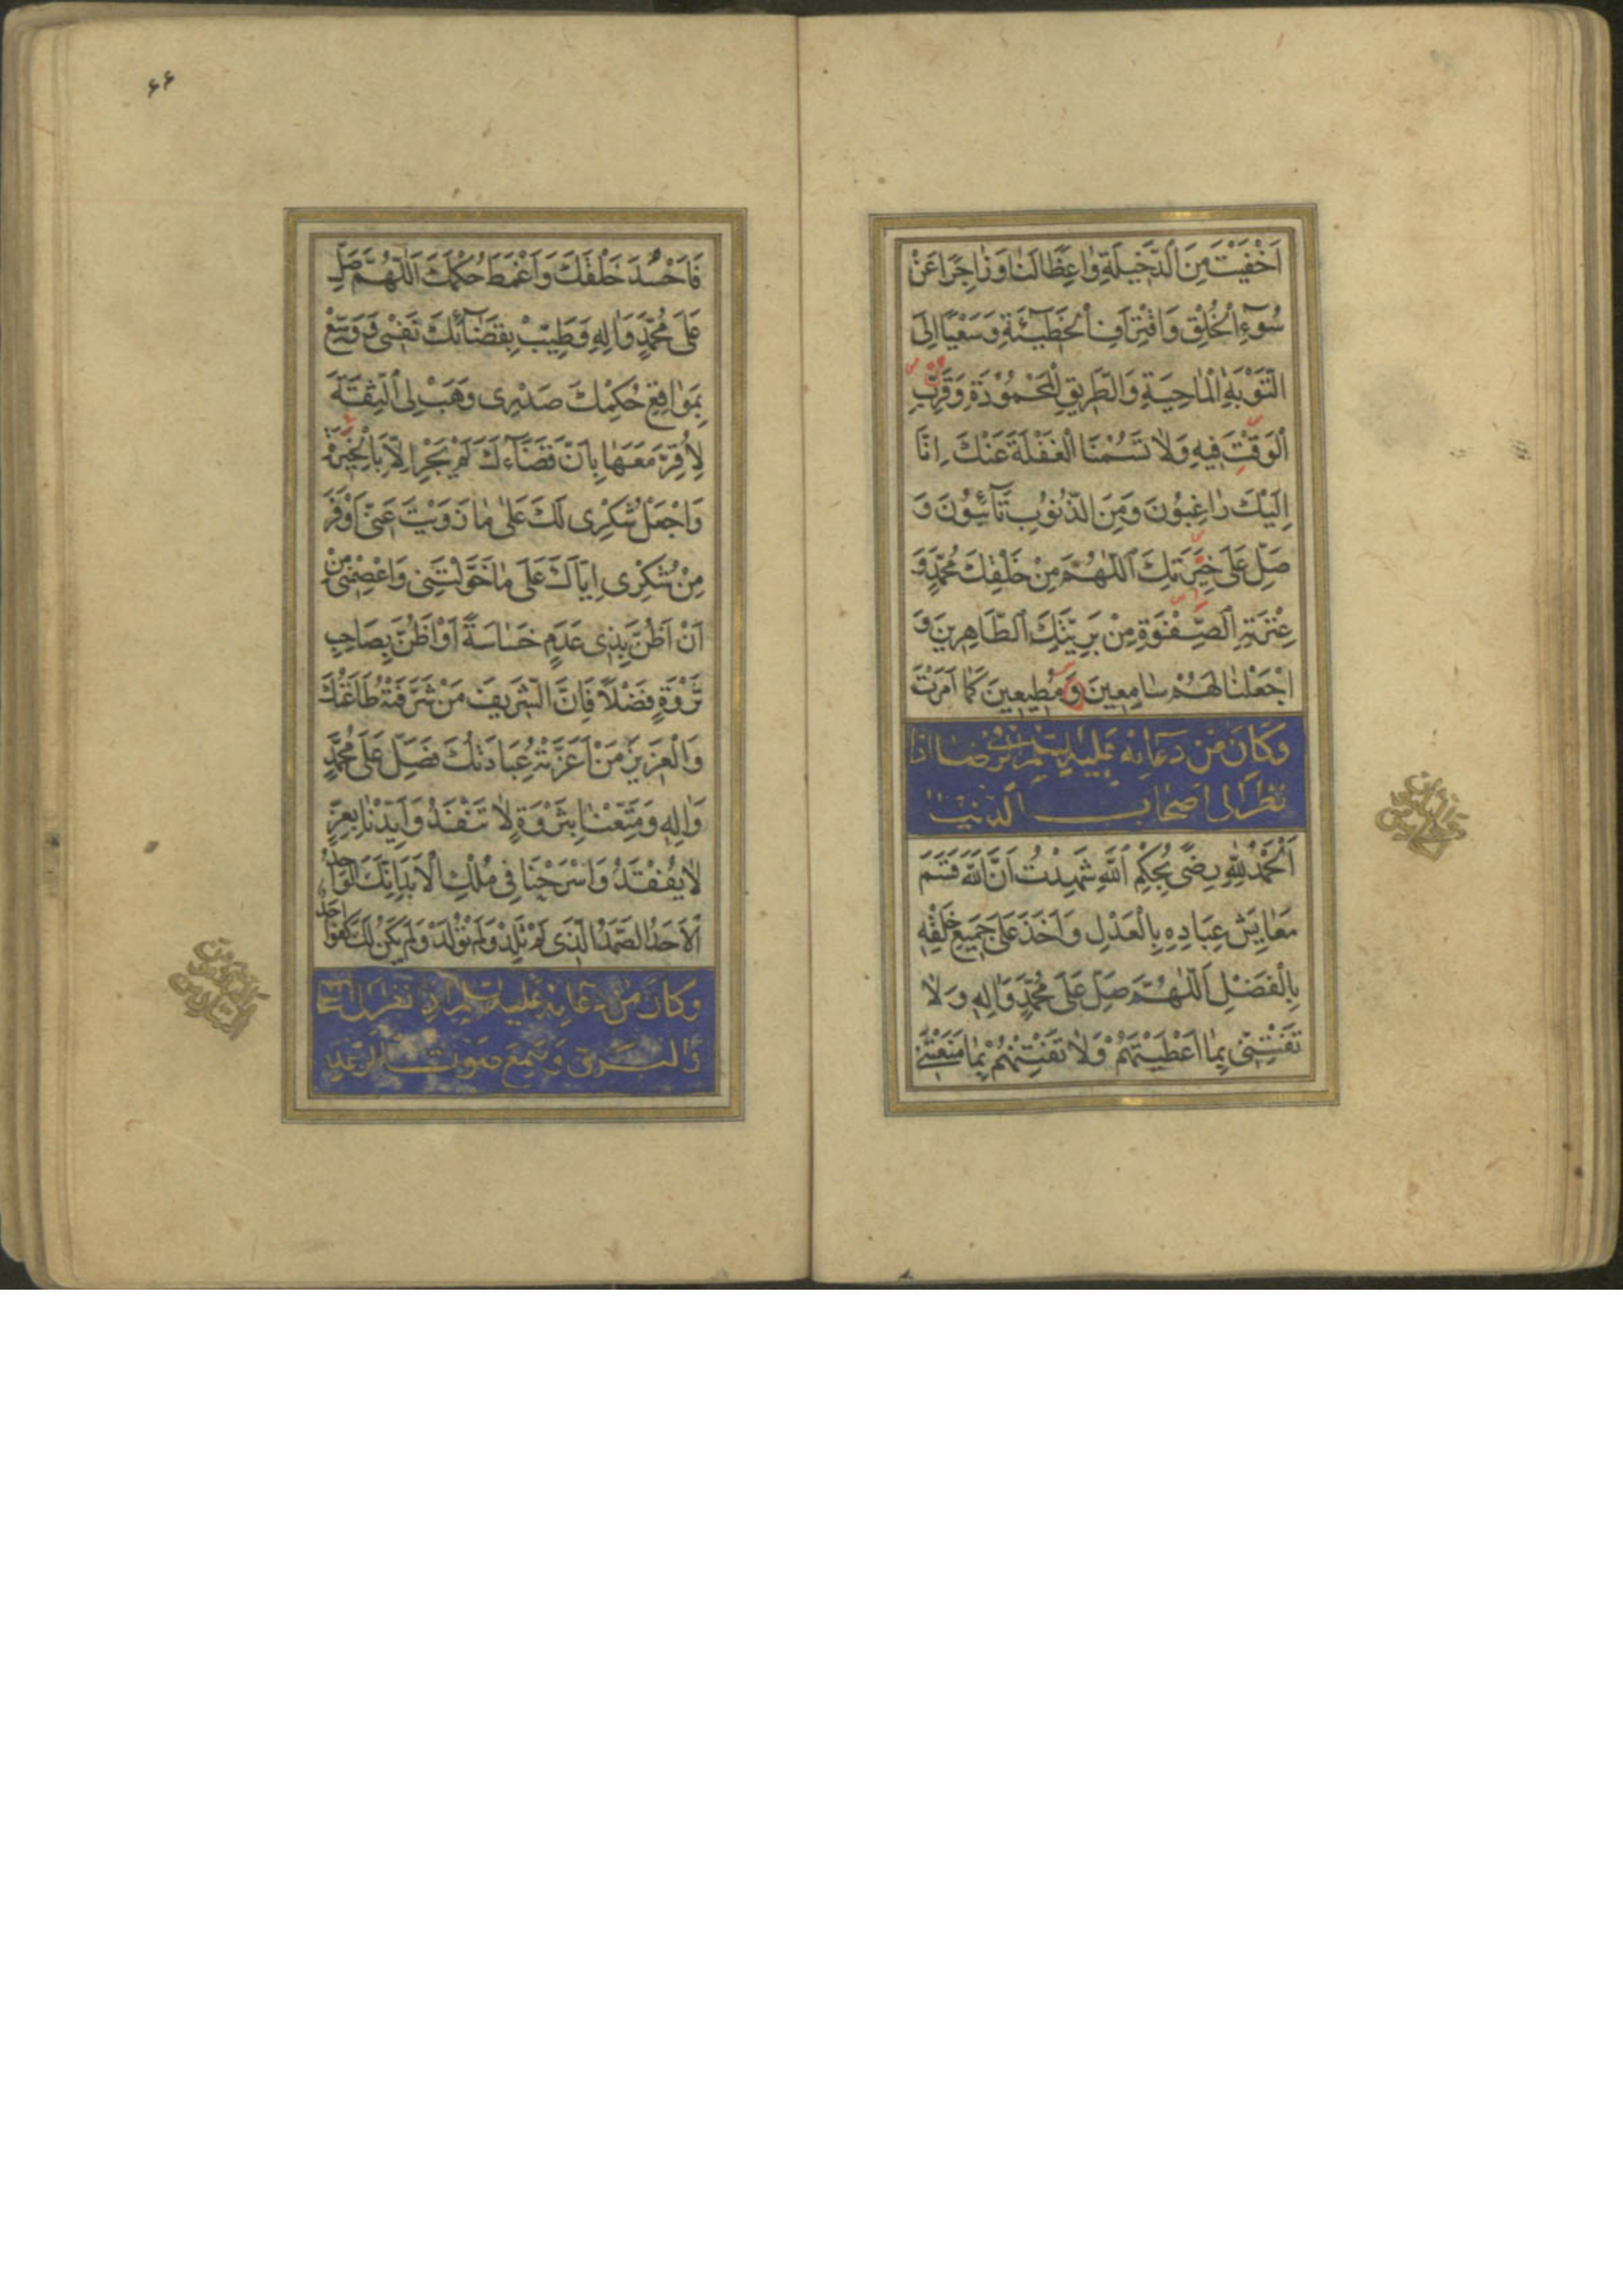 اَخْفَيْتَ مِنَ الدَّخٖيلَةِ وٰاعِظًا لَنٰا وَزٰاجِرًا عَنْ
سُوٓءِ الْخُلْقِ وَاقْتِرَافِ الْخَطٖيٓئَةِ وَسَعْيًا اِلَى
التَّوْبَةِ الْمٰاحِيَةِ وَالطَّرٖيقِ الْمَحْمُودَةِ وَقَرِّبِ
الْوَقْتَ فٖيهِ وَلٰا تَسُمْنَا الْغَفْلَةَ عَنْكَ اِنّٰا
اِلَيْكَ رٰاغِبُونَ وَمِنَ الذُّنُوبِ تٰآئِبُونَ وَ
صَلِّ عَلٰى خِيَرَتِكَ اللّٰهُمَّ مِنْ خَلْقِكَ مُحَمَّدٍ وَ
عِتْرَتِهِ الصِّفْوَةِ مِنْ بَرِيَّتِكَ الطّٰاهِرٖينَ وَ
اجْعَلْنٰا لَهُمْ سٰامِعٖينَ وَمُطٖيعٖينَ كَمٰا اَمَرْتَ
وَكَانَ مِنْ دُعَائِهِ عَلَيْهِ السَّلَامُ فِي الرِّضَا اِذَا
نَظَرَ اِلٰى اَصْحَابِ الدُّنْيَا
اَلْحَمْدُ لِلّٰهِ رِضًى بِحُكْمِ اللّٰهِ شَهِدْتُ اَنَّ اللّٰهَ قَسَمَ
مَعٰايِشَ عِبَادِهِ بِالْعَدْلِ وَاَخَذَ عَلٰى جَمٖيعِ خَلْقِهِ
بِالْفَضْلِ اَللّٰهُمَّ صَلِّ عَلٰى مُحَمَّدٍ وَاٰلِهِ وَلٰا
تَفْتِنّٖى بِمٰا اَعْطَيْتَهُمْ وَلٰا تَفْتِنْهُمْ بِمٰا مَنَعْتَنٖى
۶۶
فَاَحْسُدَ خَلْقَكَ وَاَغْمَطَ حُكْمَكَ اَللّٰهُمَّ صَلِّ
عَلٰى مُحَمَّدٍ وَاٰلِهِ وَطَيِّبْ بِقَضٰآئِكَ نَفْسٖى وَوَسِّعْ
بِمَوٰاقِعِ حُكْمِكَ صَدْرٖى وَهَبْ لِىَ الثِّقَةَ
لِاُقِرَّ مَعَهٰا بِاَنَّ قَضٰآءَكَ لَمْ يَجْرِ اِلّٰا بِالْخِيَرَةِ
وَاجْعَلْ شُكْرٖى لَكَ عَلٰى مٰا زَوَيْتَ عَنّٖى اَوْفَرَ
مِنْ شُكْرٖى اِيّٰاكَ عَلٰى مٰا خَوَّلْتَنٖى وَاعْصِمْنٖى مِنْ
اَنْ اَظُنَّ بِذٖى عَدَمٍ خَسٰاسَةً اَوْ اَظُنَّ بِصٰاحِبِ
ثَرْوَةٍ فَضْلًا فَاِنَّ الشَّرٖيفَ مَنْ شَرَّفَتْهُ طٰاعَتُكَ
وَالْعَزٖيزَ مَنْ اَعَزَّتْهُ عِبَادَتُكَ فَصَلِّ عَلٰى مُحَمَّدٍ
وَاٰلِهِ وَمَتِّعْنٰا بِثَرْوَةٍ لٰا تَنْفَدُ وَاَيِّدْنٰا بِعِزٍّ
لٰا يُفْقَدُ وَاسْرَحْنَا فٖى مُلْكِ الْاَبَدِ اِنَّكَ الْوٰاحِدُ
الْاَحَدُ الصَّمَدُ الَّذٖى لَمْ تَلِدْ وَلَمْ تُوْلَدْ وَلَمْ يَكُنْ لَكَ كُفُوًا اَحَدٌ
وَكَانَ مِنْ دُعَائِهِ عَلَيْهِ السَّلَامُ اِذَا نَظَرَ اِلَى السَّحَابِ
وَالْبَرْقِ وَسَمِعَ صَوْتَ الرَّعْدِ